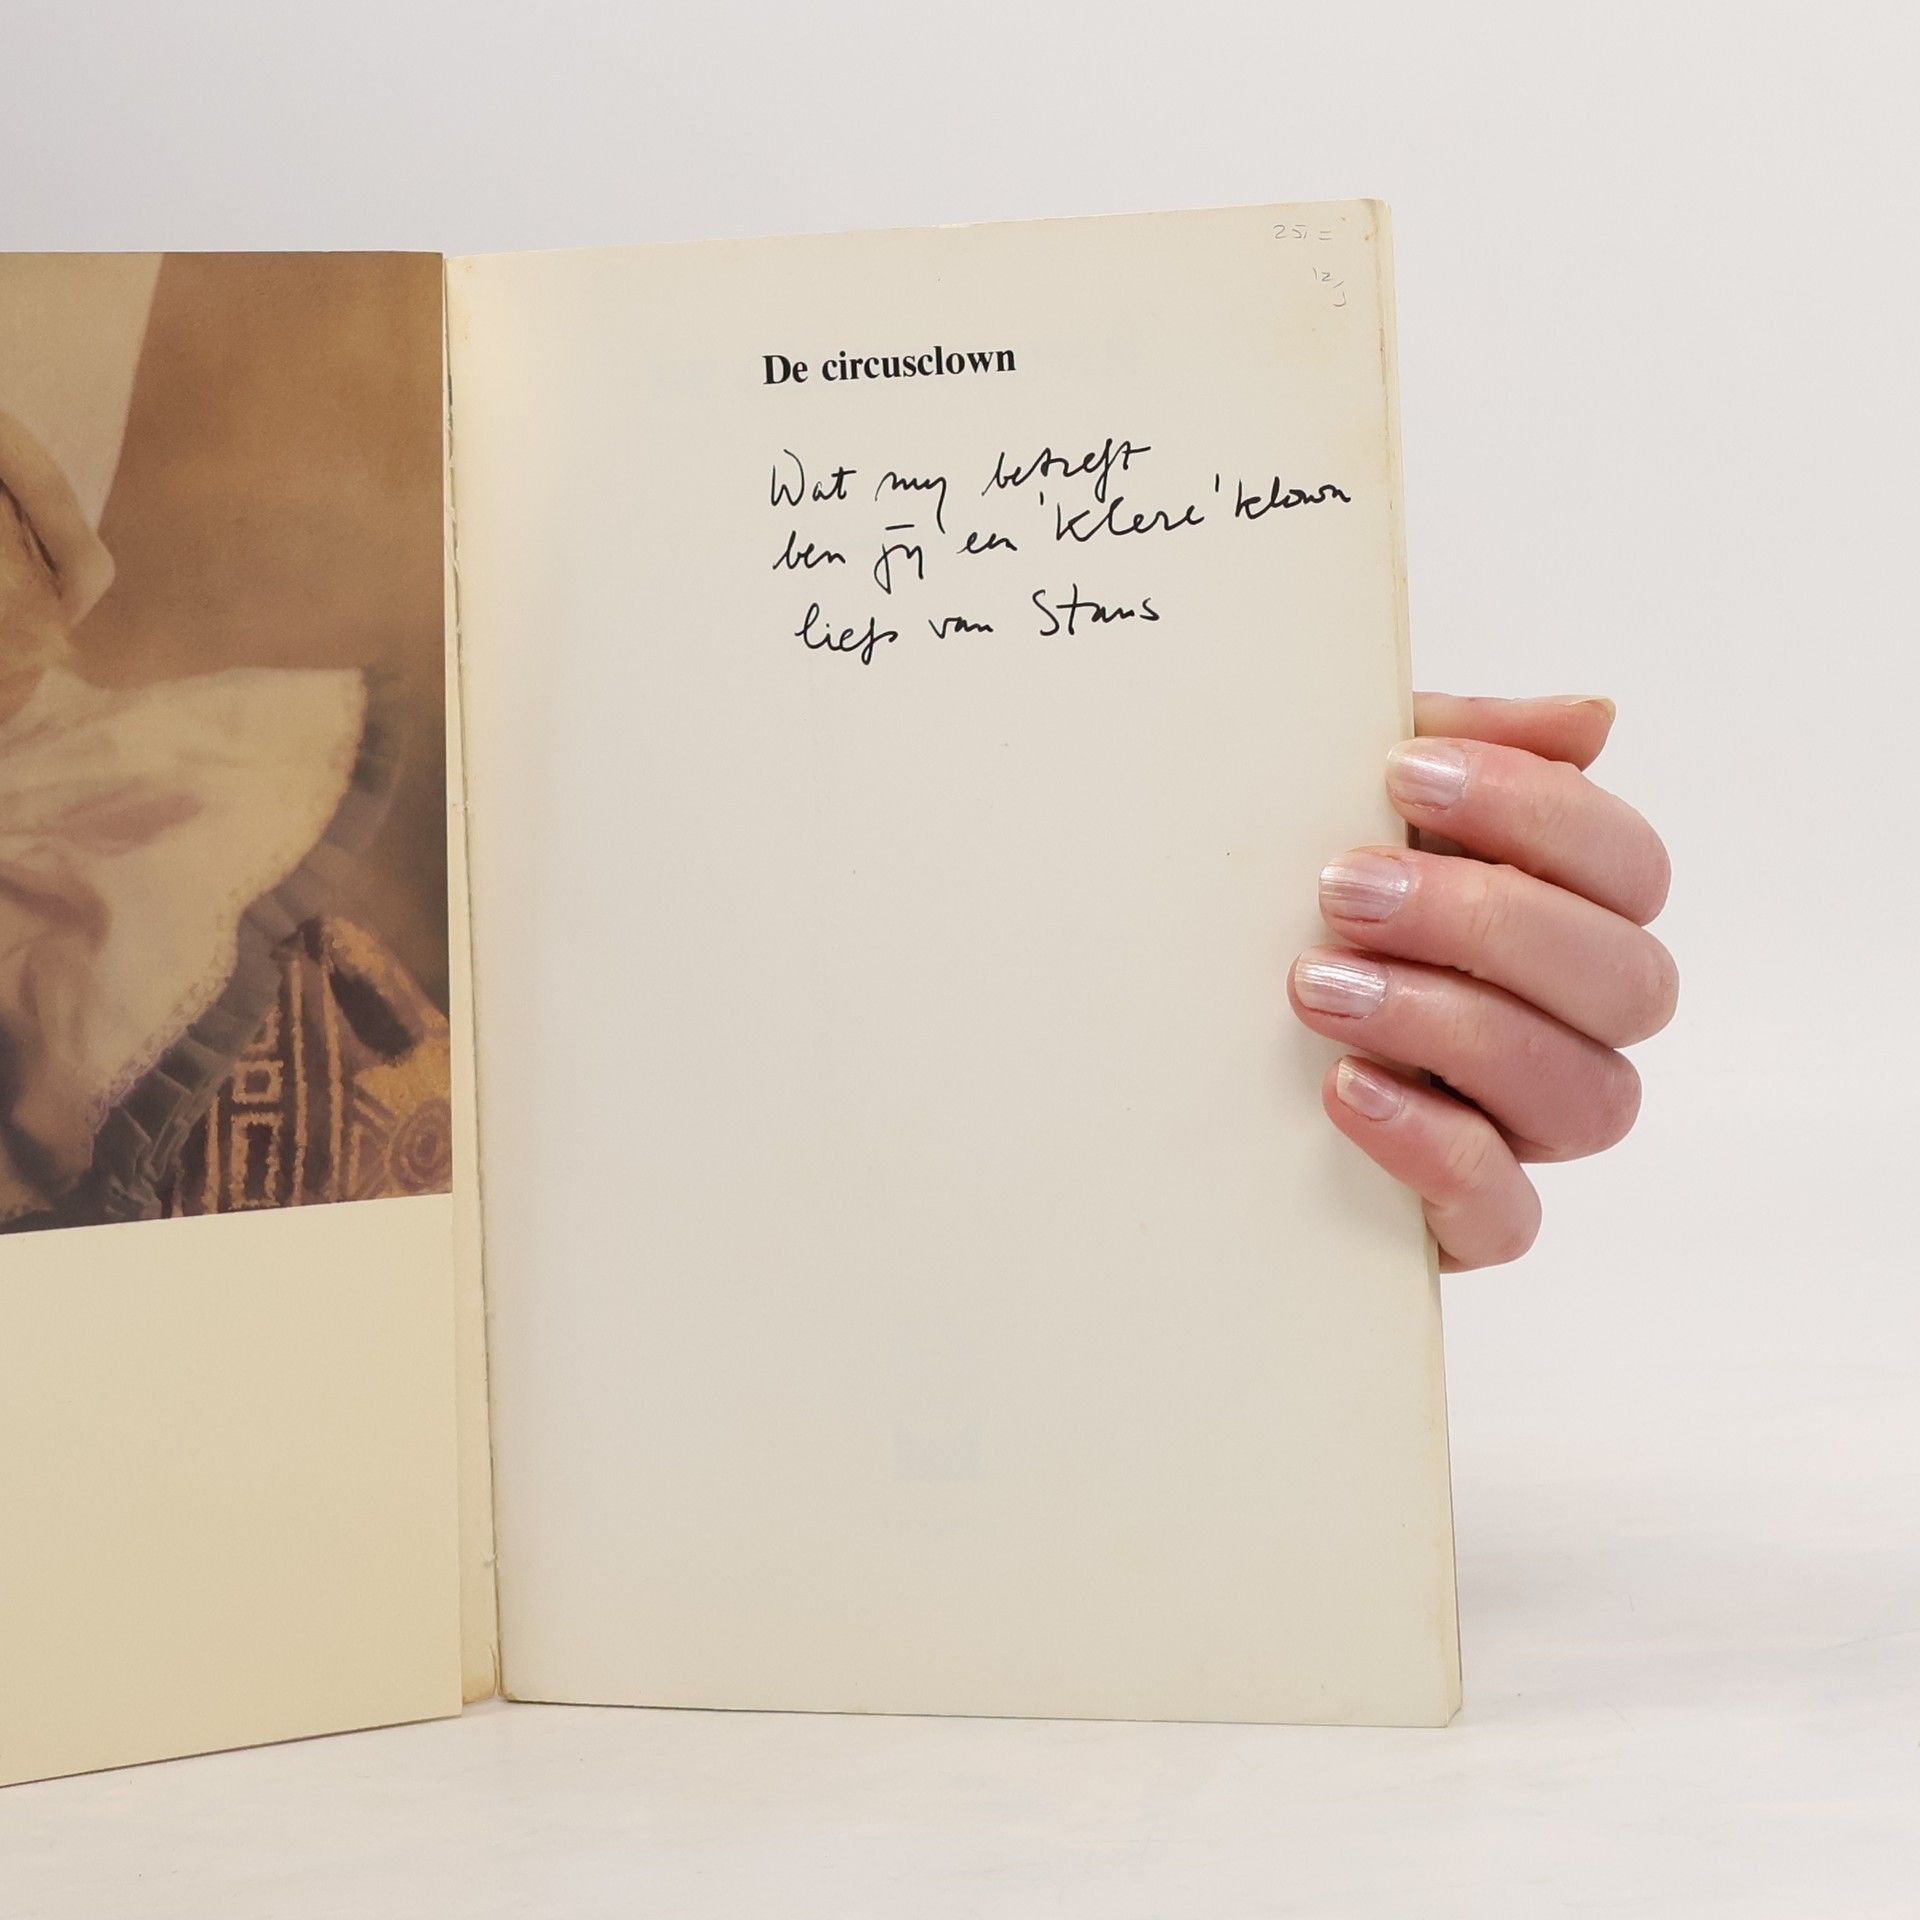 25,=
De circusclown
Wat my betreft
ben jy een 'klere' klown
liefs van Stans